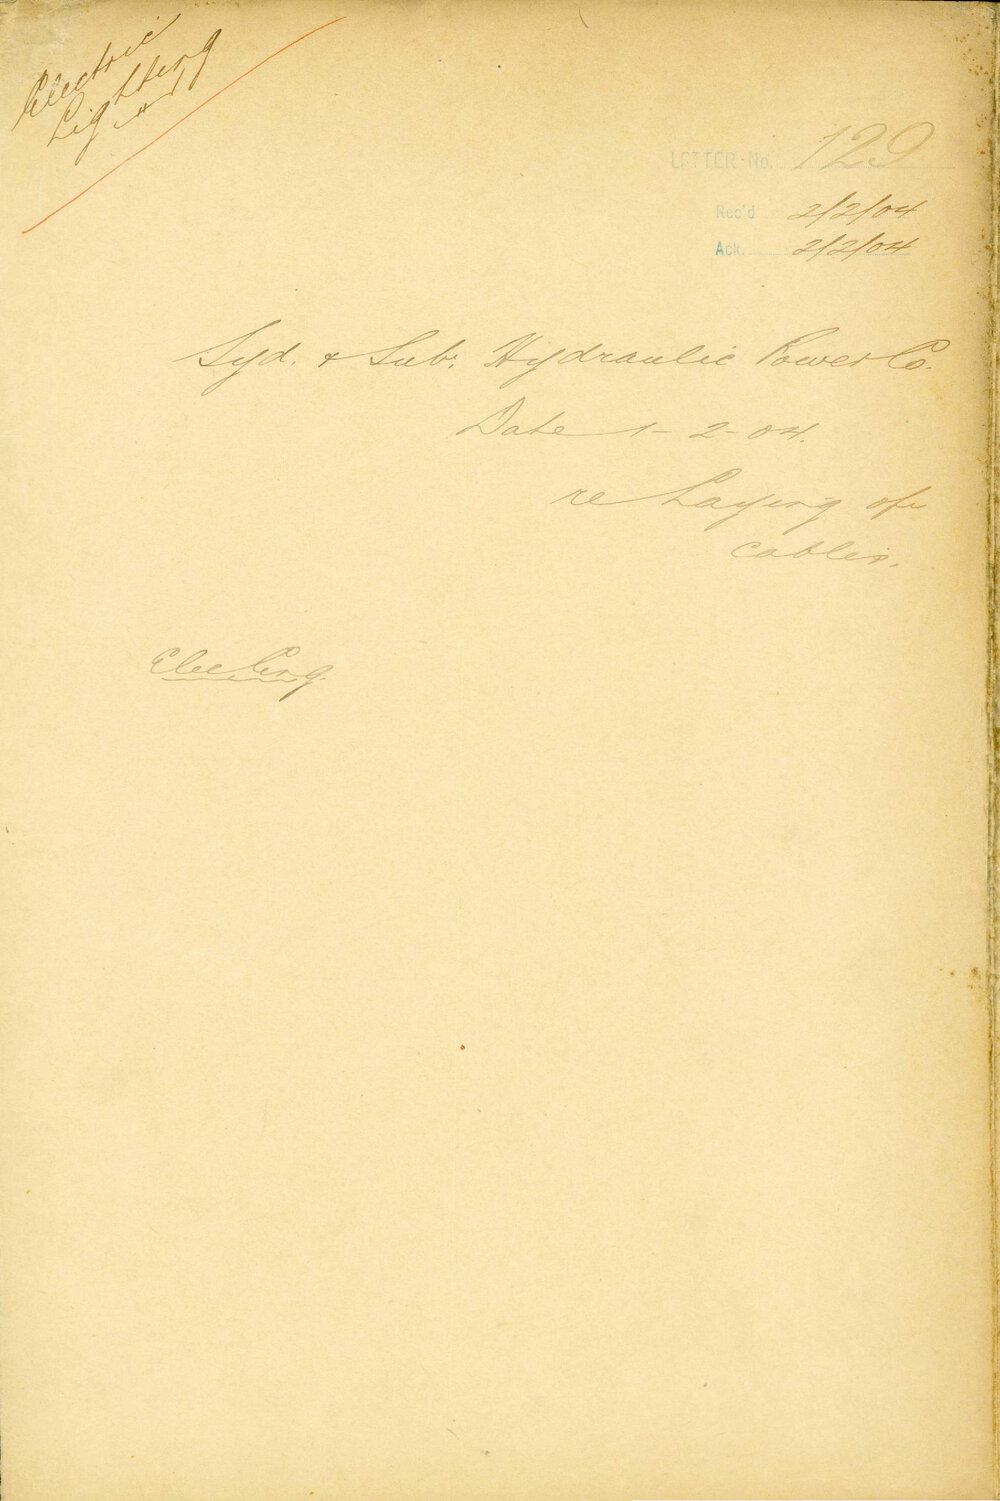 Electric
Lighting
LETTER No. 129
Rec'd 2/2/04
Ack. 2/2/04
Syd. & Sub. Hydraulic Power Co.
Date 1-2-04.
re Laying of
cables.
Elec Eng.